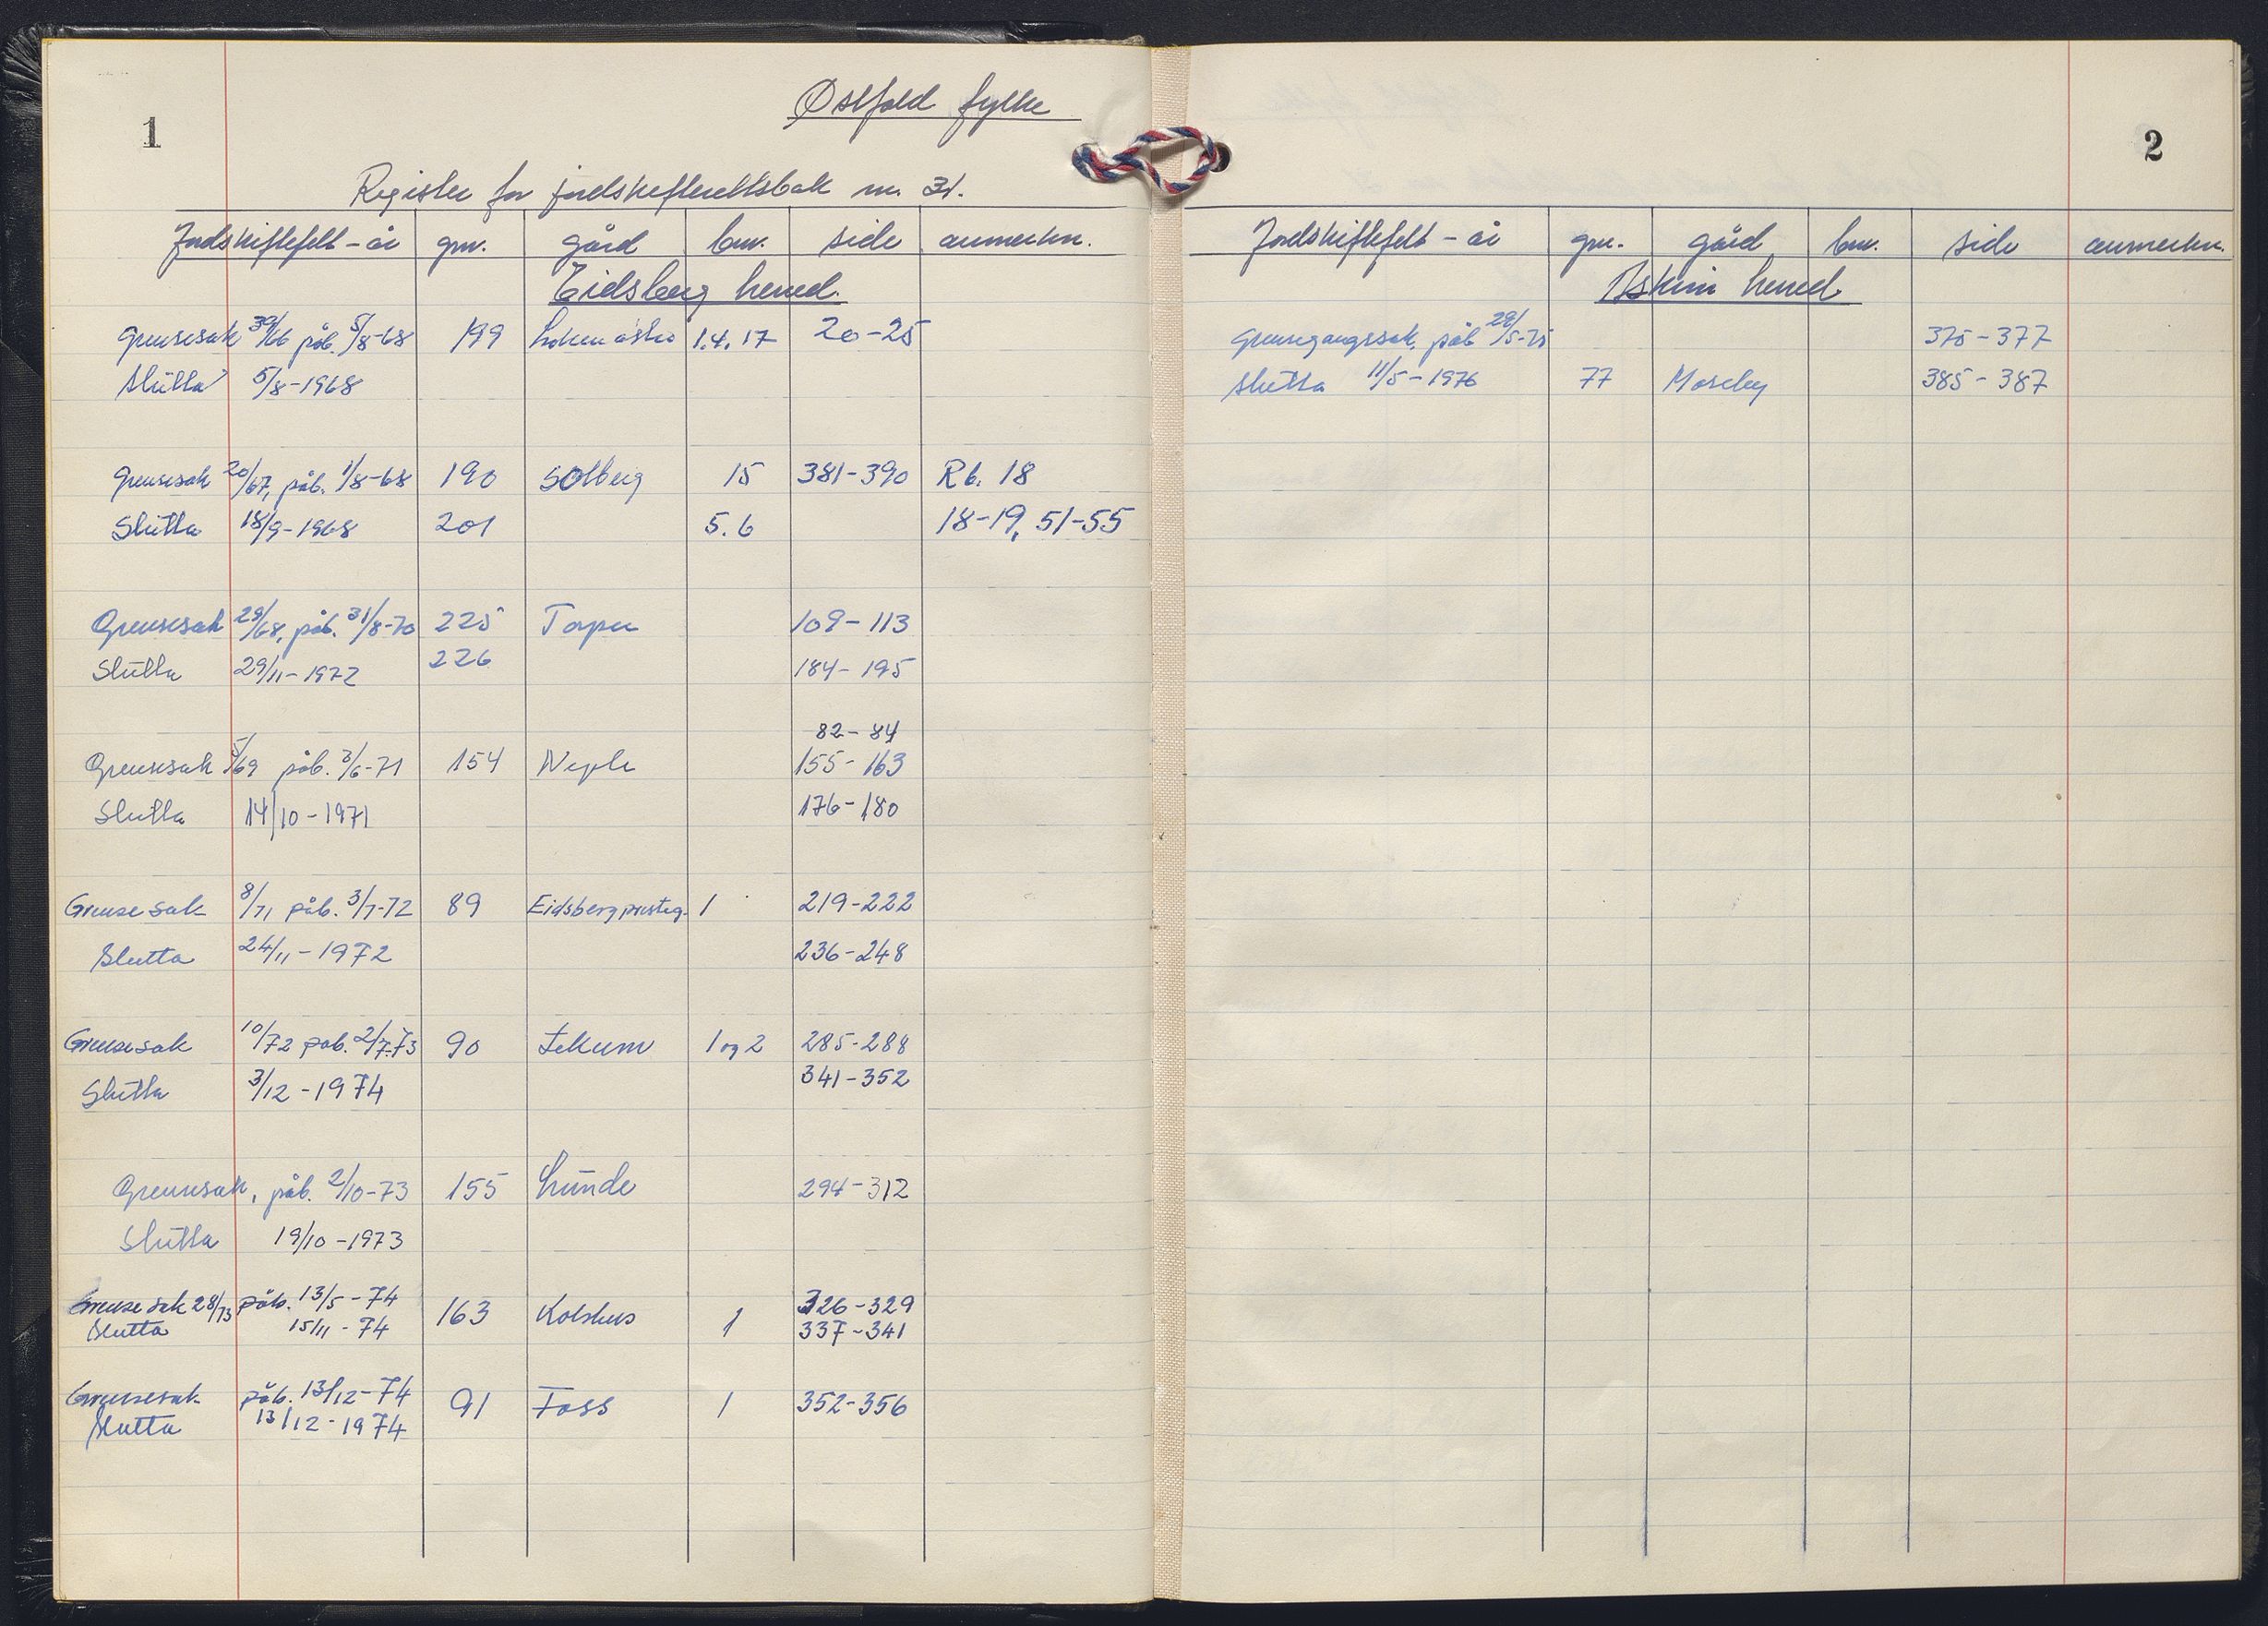 1
Østfold fylke
Register for jordskifterettsbok nr. 31.
Jordskiftefelt - år gnr. gård bnr. side anmerkn.
Eidsberg herred.
Grensesak 39/66 påb. 5/8-68 199 Løken østre 1.4.17 20-25
Slutta 5/8-1968
Grensesak 20/67, påb. 1/8-68 190 Solberg 15 381-390 Rb. 18
Slutta 18/9-1968 201 5.6 18-19, 51-55
Grensesak 29/68, påb. 31/8-70 225 Torper 109-113
Slutta 29/11-1972 226 184-195
82-84
Grensesak 5/69 påb. 3/6-71 154 Neple 155-163
Slutta 14/10-1971 176-180
Grensesak 8/71 påb. 3/7-72 89 Eidsberg presteg. 1 219-222
Slutta 24/11-1972 236-248
Grensesak 10/72 påb. 2/7-73 90 Lekum 1 og 2 285-288
341-352
Slutta 3/12-1974
Grensesak, påb. 2/10-73 155 Lunde 294-312
Slutta 19/10-1973
Grensesak 28/73 påb. 13/5-74 163 Kolshus 1 326-329
Slutta 15/11-74 337-341
Grensesak påb. 13/12-74 91 Foss 1 352-356
Slutta 13/12-1974
2
Jordskiftefelt - år gnr. gård bnr. side anmerkn.
Askim herred
Grensegangssak, påb 29/5-75 375-377
Slutta 11/5-1976 77 Moseby 385-387